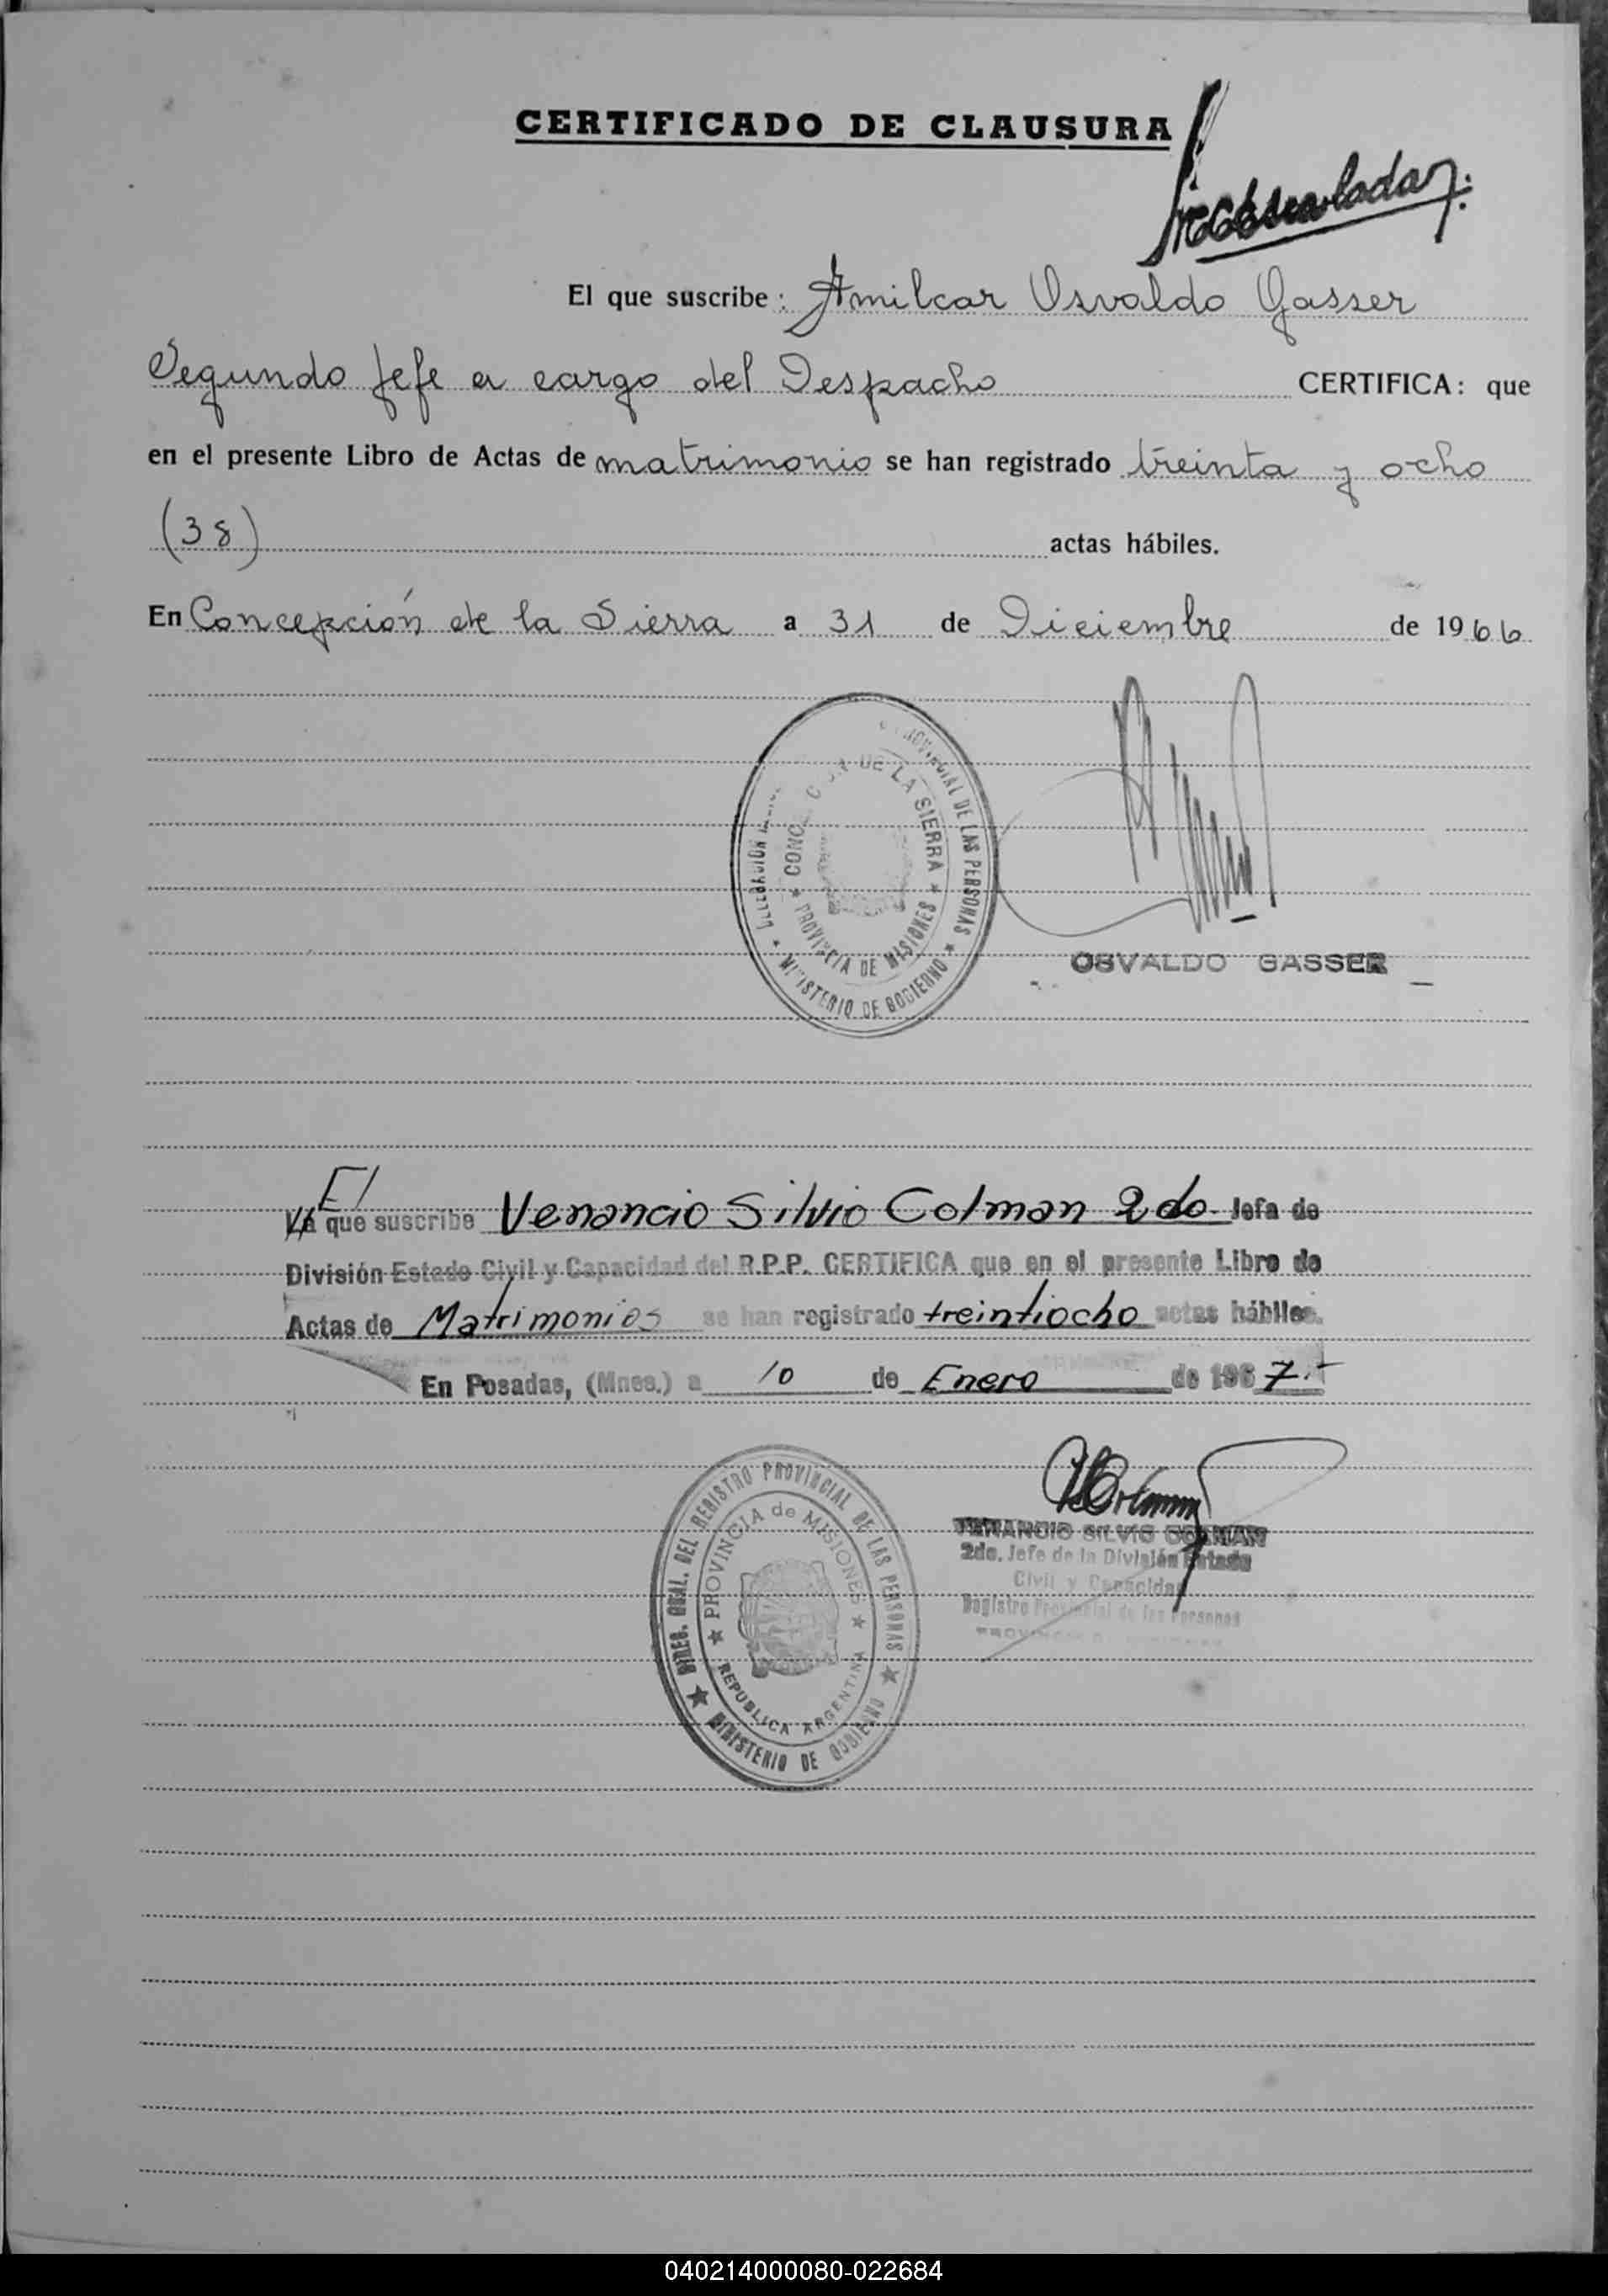 CERTIFICADO DE CLAUSURA
El que suscribe: Amilcar Osvaldo Gasser
Segundo Jefe a cargo del Despacho CERTIFICA: que
en el presente Libro de Actas de matrimonio se han registrado treinta y ocho
(38) actas hábiles.
En Concepción de la Sierra a 31 de Diciembre de 1966
PROVINCIAL DE LAS PERSONAS
DE LA SIERRA
PROVINCIA DE MISIONES
MINISTERIO DE GOBIERNO
OSVALDO GASSER
El
La que suscribe Venancio Silvio Colman 2do Jefa de
División Estado Civil y Capacidad del R.P.P. CERTIFICA que en el presente Libro de
Actas de Matrimonios se han registrado treintiocho actas hábiles.
En Posadas, (Mnes.) a 10 de Enero de 1967.-
DIREC. GRAL. DEL REGISTRO PROVINCIAL DE LAS PERSONAS
PROVINCIA de MISIONES
REPUBLICA ARGENTINA
MINISTERIO DE GOBIERNO
VENANCIO SILVIO COLMAN
2do. Jefe de la División Estado
Civil y Capacidad
Registro Provincial de las Personas
040214000080-022684